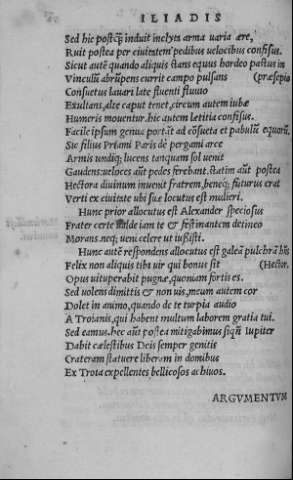 ILIADIS
Sed hic postq̃ induit inclyta arma uaria ære,
Ruit postea per ciuitatem pedibus uelocibus confisus.
Sicut autē quando aliquis stans equus hordeo pastus in
Vinculũ abrũpens currit campo pulsans (præsepio
Consuetus lauari late fluenti fluuio
Exultans, alte caput tenet, circum autem iubæ
Humeris mouentur. hic autem letitia confisus.
Facile ipsum genua port. it ad cõsueta et pabulũ equorũ,
Sic filius Priami Paris de pergami arce
Armis undiq; lucens tanquam sol uenit
Gaudens: ueloces aũt pedes ferebant. statim aũt postea
Hectora diuinum inuenit fratrem, beneq; futurus erat
Verti ex ciuitate ubi suæ locutus est mulieri.
Hunc prior allocutus est Alexander speciosus
Frater certe ualde iam te & festinantem detineo
Morans. neq; ueni celere ut iußisti.
Hunc autē respondens allocutus est galeã pulchrã hñs
Felix non aliquis tibi uir qui bonus sit (Hector.
Opus uituperabit pugnæ, quoniam fortis es.
Sed uolens dimittis & non uis, meum autem cor
Dolet in animo, quando de te turpia audio
A Troianis, qui habent multum laborem gratia tui.
Sed eamus. hec aũt postea mitigabimus siqñ Iupiter
Dabit cælestibus Deis semper genitis
Crateram statuere liberam in domibus
Ex Troia expellentes bellicosos achiuos.
ARGVMENTVM